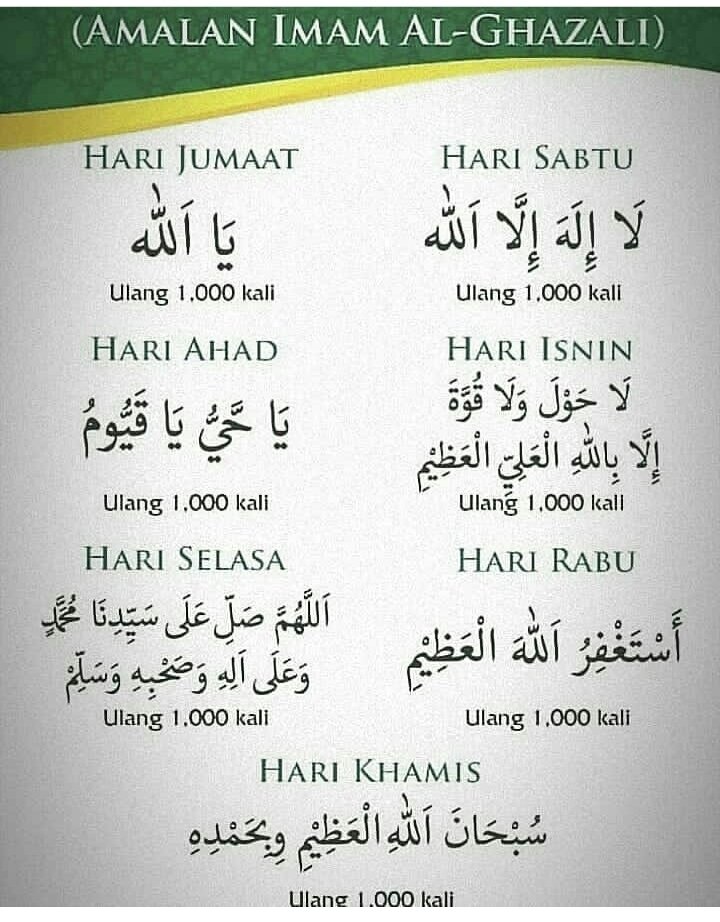 (AMALAN IMAM AL-GHAZALI)
HARI JUMAAT
يَا اَللّٰه
Ulang 1,000 kali
HARI SABTU
لَا إِلَهَ إِلَّا اَللّٰه
Ulang 1,000 kali
HARI AHAD
يَا حَيُّ يَا قَيُّومُ
Ulang 1,000 kali
HARI ISNIN
لَا حَوْلَ وَلَا قُوَّةَ
إِلَّا بِاللّٰهِ الْعَلِيِّ الْعَظِيْمِ
Ulang 1,000 kali
HARI SELASA
اَللّٰهُمَّ صَلِّ عَلَى سَيِّدِنَا مُحَمَّدٍ
وَعَلَى اَلِهِ وَصَحْبِهِ وَسَلِّمْ
Ulang 1,000 kali
HARI RABU
أَسْتَغْفِرُ اَللّٰهَ الْعَظِيْمِ
Ulang 1,000 kali
HARI KHAMIS
سُبْحَانَ اَللّٰهِ الْعَظِيْمِ وَبِحَمْدِهِ
Ulang 1,000 kali